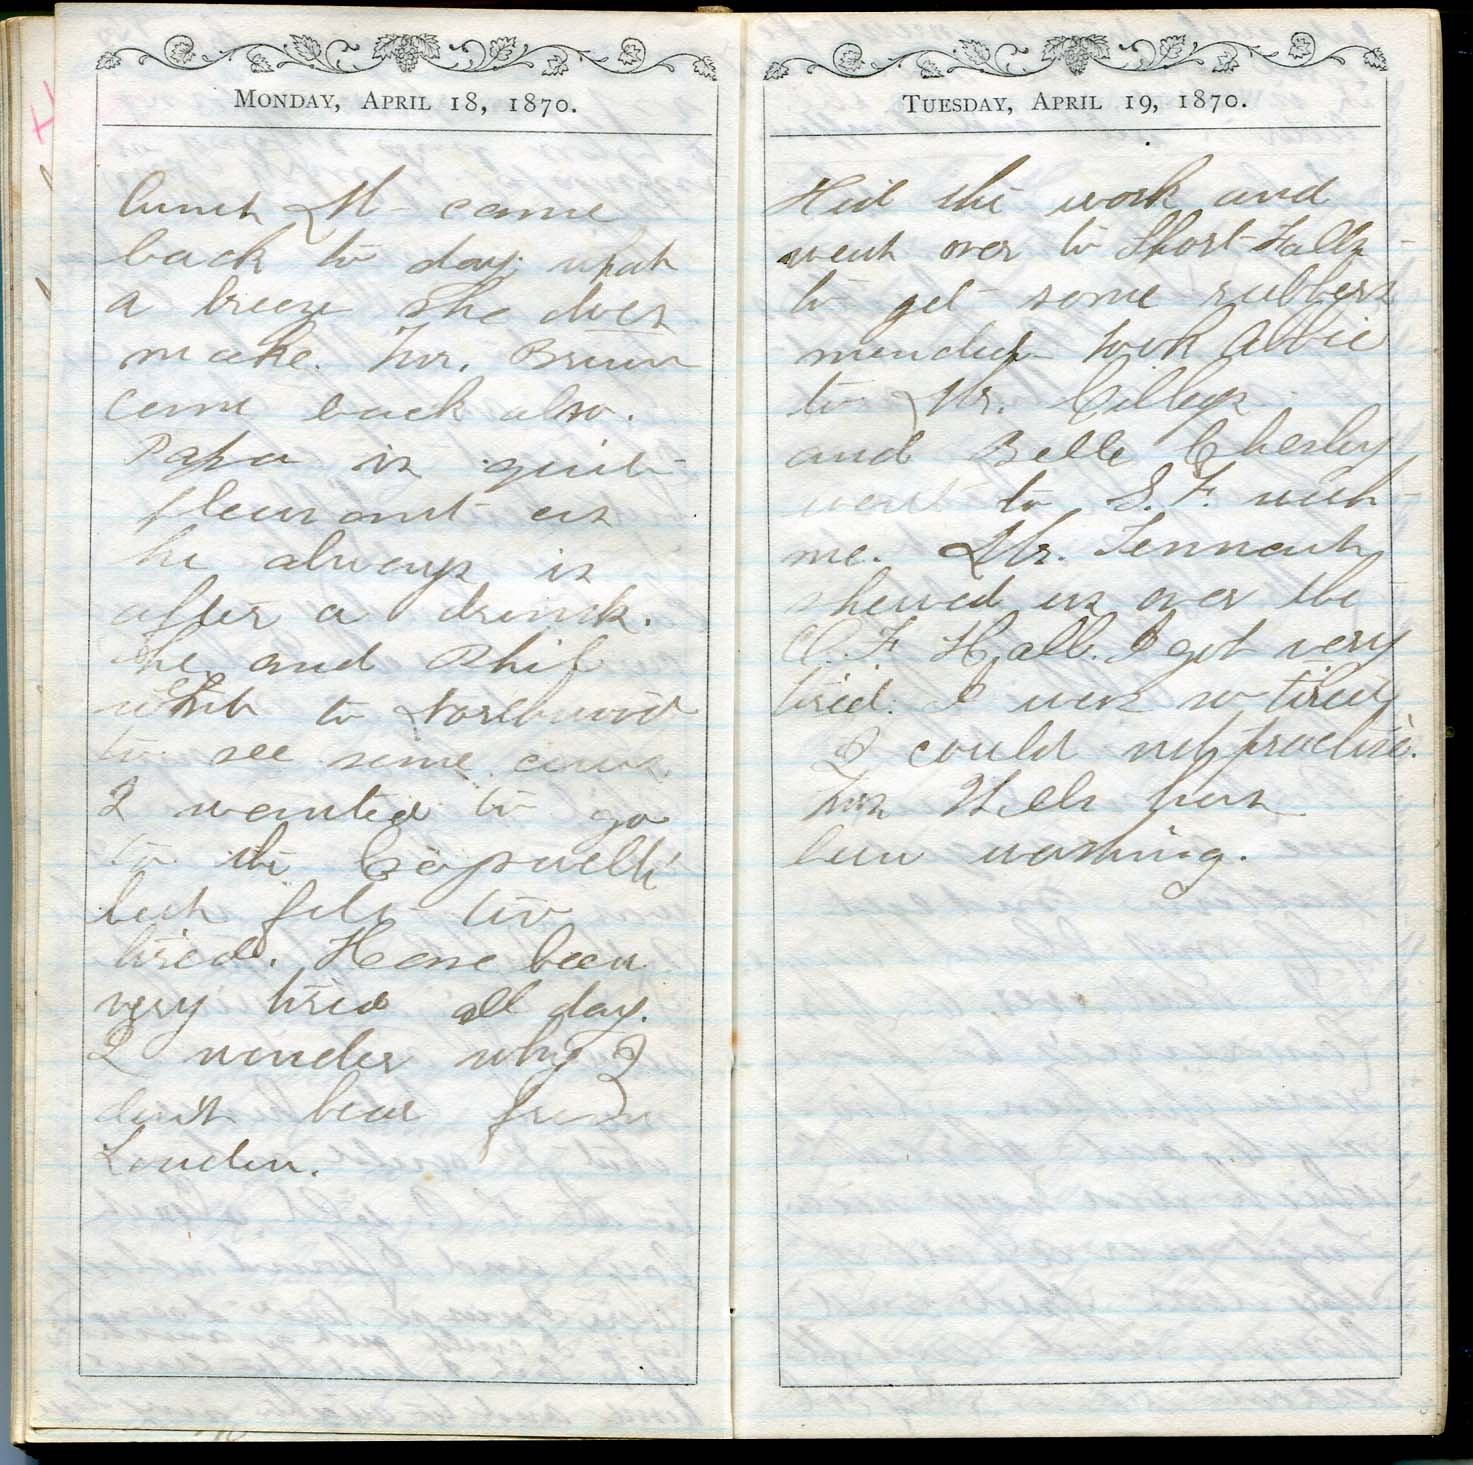 MONDAY, APRIL 18, 1870.
Aunt M came
back to day what
a breeze she does
make. Mr. Brown
came back also.
Papa is quite
pleasant as
he always is
after a drink.
he and Phil
went to Northwood
to see some cows
I wanted to go
to the Cogswells'
but felt too
tired. Have been
very tired all day.
I wonder why I
don't hear from
Loudon.
TUESDAY, APRIL 19, 1870.
Did the work and
went over to Short Falls
to get some rubbers
mended took Abbie
to Mr. Cilleys
and Belle Chesley
went to S. F. with
me. Mr. Tennant
showed us over the
O. F. Hall. I got very
tired. I was so tired
I could not practise.
Mrs Wells has
been washing.